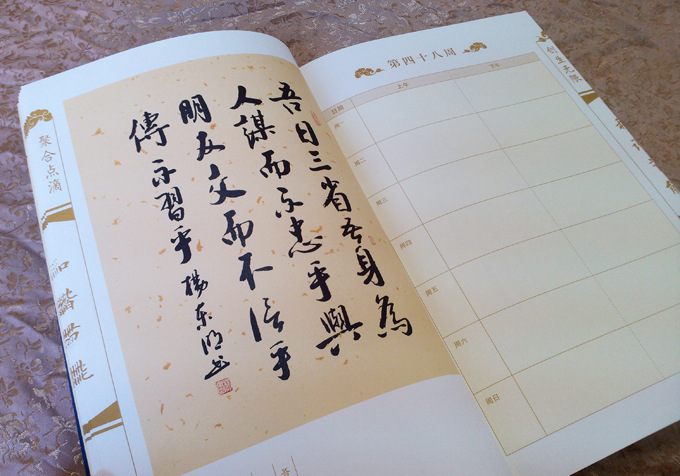 聚合点滴
吾日三省吾身為
人謀而不忠乎與
朋友交而不信乎
傳不習乎 楊東明書
第四十八周
日期 上午 下午
周一
周二
周三
周四
周五
周六
周日
创生无限